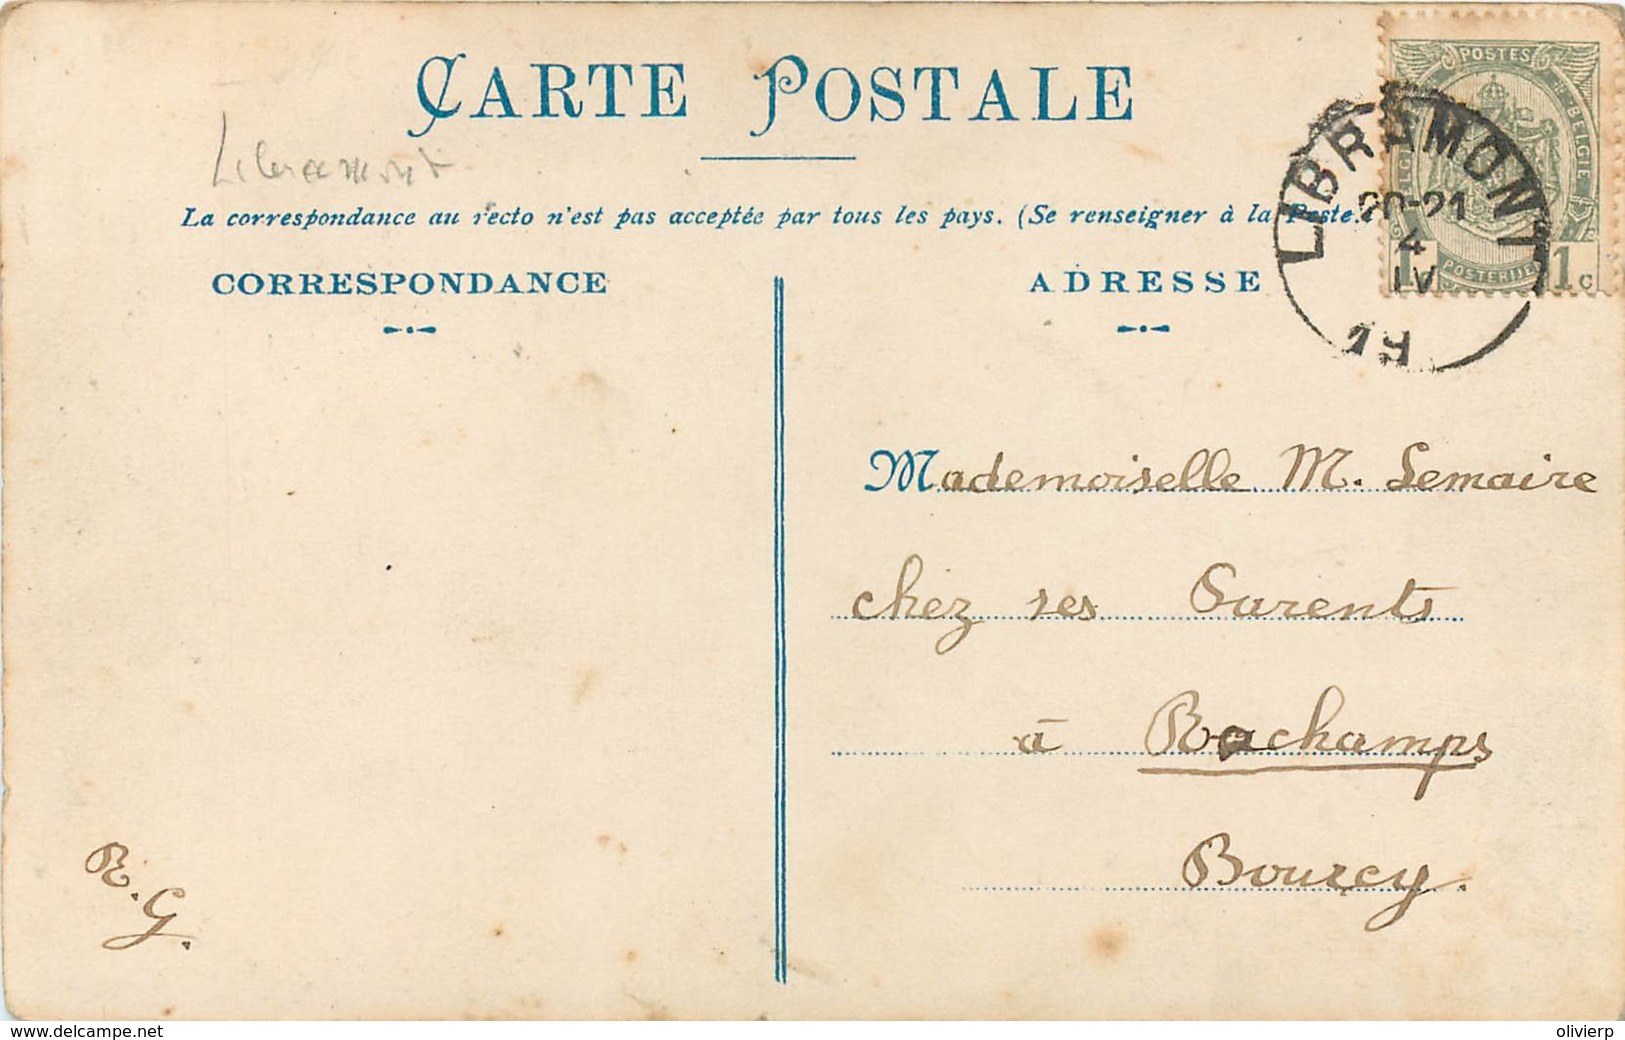 CARTE POSTALE
Libramont
La correspondance au recto n'est pas acceptée par tous les pays. (Se renseigner à la Poste.)
CORRESPONDANCE
ADRESSE
POSTES
BELGIE
POSTERIJEN
1 1 c
LIBRAMONT
20-21
4
IV
Mademoiselle M. Lemaire
chez ses Parents
à Rachamps
Bourcy.
R. G.
www.delcampe.net
olivierp